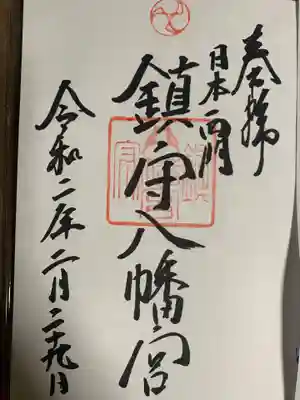 奉拝
日本一周
鎮守八幡宮
令和二年二月二十九日